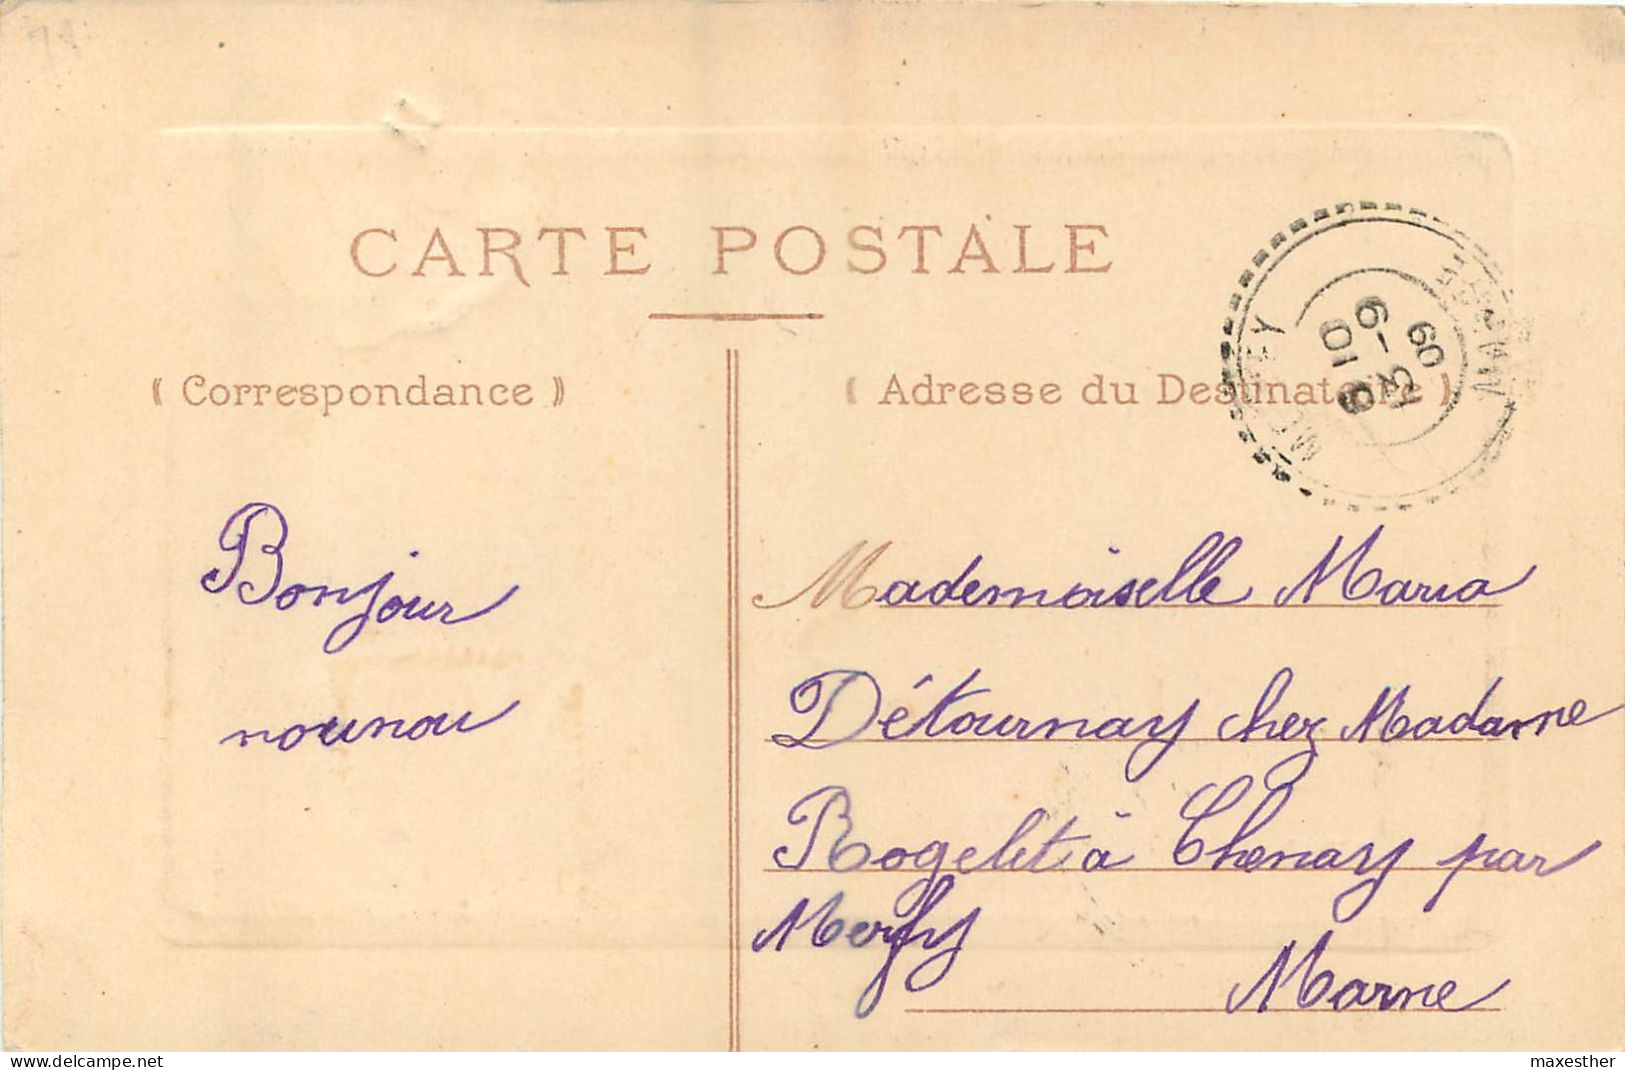 CARTE POSTALE
« Correspondance »
« Adresse du Destinataire »
09
Bonjour
nounou
Mademoiselle Maria
Détournay chez Madame
Rogelet à Chenay par
Merfy
Marne
Delcampe.net
maxesther